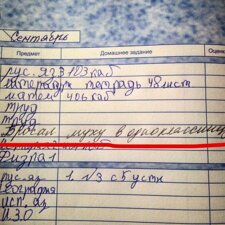 Сентябрь
Предмет Домашнее задание Оценка
рус. яз 103 каб
литература тетрадь 48 лист
матем 406 каб
труд
труд
Бросал муху в одноклассниц
Физра 1
рус. яз 1. √3 с 5 устн
География
исп. яз
ИЗО